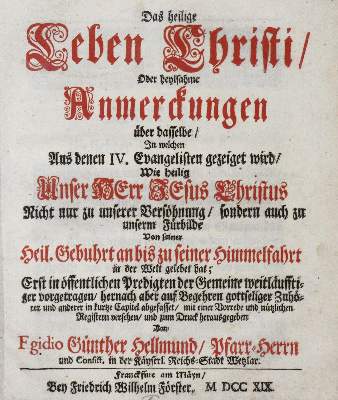 Das heilige
Leben Christi/
Oder heylsahme
Anmerckungen
über dasselbe/
In welchen
Aus denen IV. Evangelisten gezeiget wird/
Wie heilig
Unser HErr JEsus Christus
Nicht nur zu unserer Versöhnung/ sondern auch zu
unserm Fürbilde
Von seiner
Heil. Gebuhrt an bis zu seiner Himmelfahrt
in der Welt gelebet hat;
Erst in öffentlichen Predigten der Gemeine weitläuffti-
ger vorgetragen/ hernach aber auf Begehren gottseliger Zuhö-
rer und anderer in kurtze Capitel abgefasset/ mit einer Vorrede und nützlichen
Registern versehen/ und zum Druck herausgegeben
Von
Egidio Günther Hellmund/ Pfarr-Herrn
und Consist. in der Käyserl. Reichs-Stadt Wetzlar.
Franckfurt am Mäyn/
Bey Friedrich Wilhelm Förster. M DCC XIX.